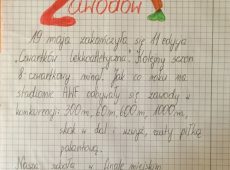 Zawodów
19 maja zakończyła się 11 edycja
"Czwartków Lekkoatletycznych". Kolejny sezon
z czwartkowy minął. Jak co roku na
stadionie AWF odbywały się zawody w
konkurencji: 300m, 60m, 600m, 1000m,
skok w dal i wzwyż, rzuty piłką
palantową.
Nasza szkoła w finale miejskim